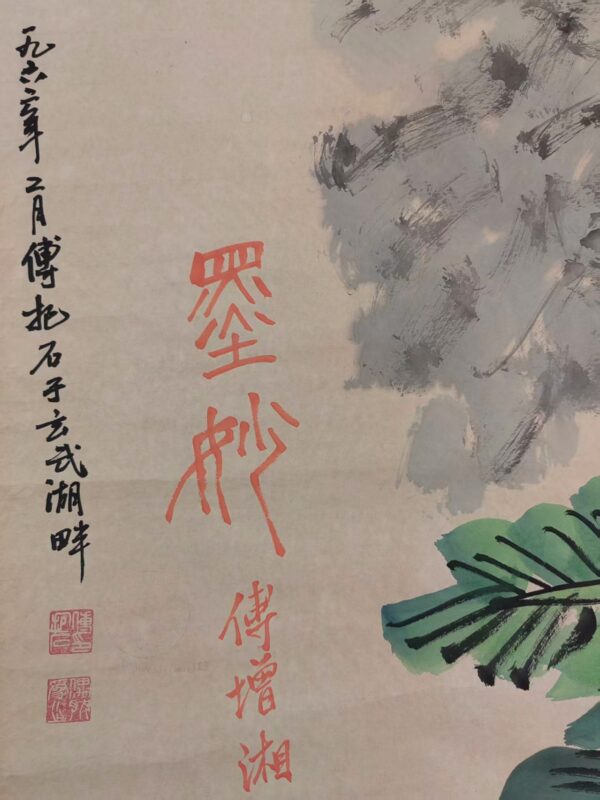 墨妙
傅增湘
一九六二年二月傅抱石于玄武湖畔